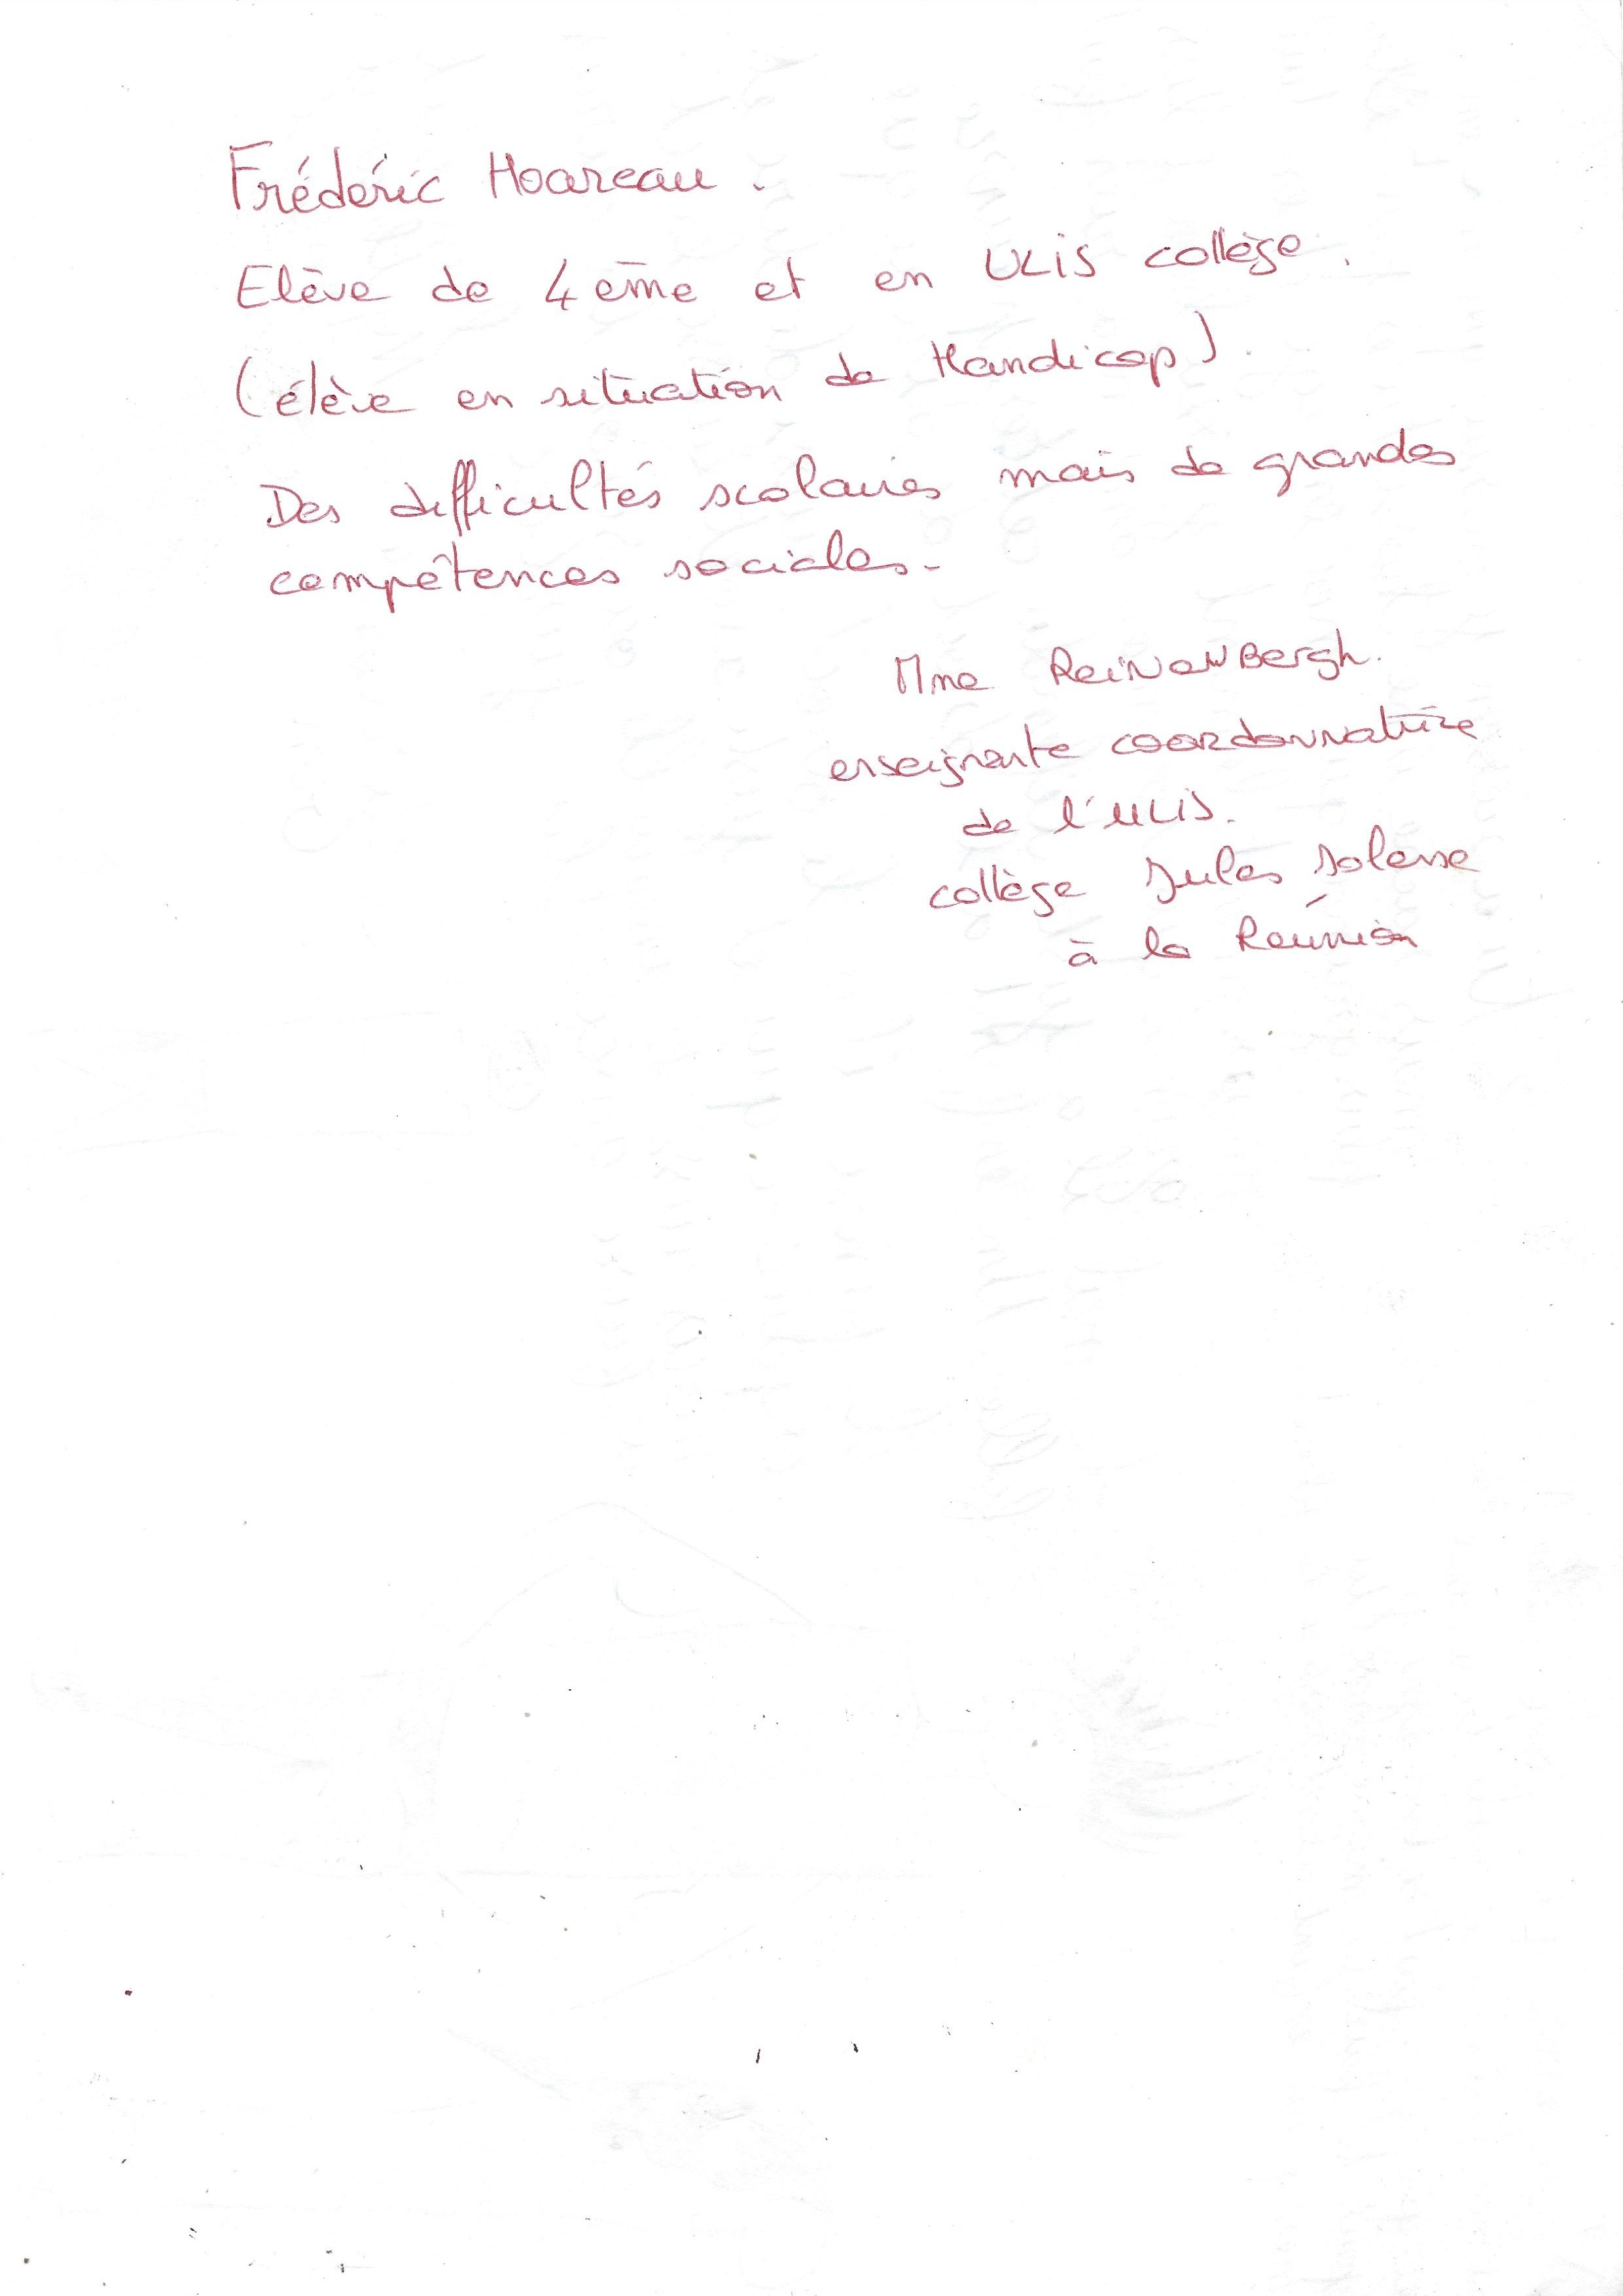 Frédéric Hoareau.
Elève de 4ème et en ULIS collège.
(élève en situation de Handicap).
Des difficultés scolaires mais de grandes
compétences sociales.
Mme ReiNenBergh.
enseignante coordonnatrice
de l'ULIS.
collège Jules Solesse
à la Réunion